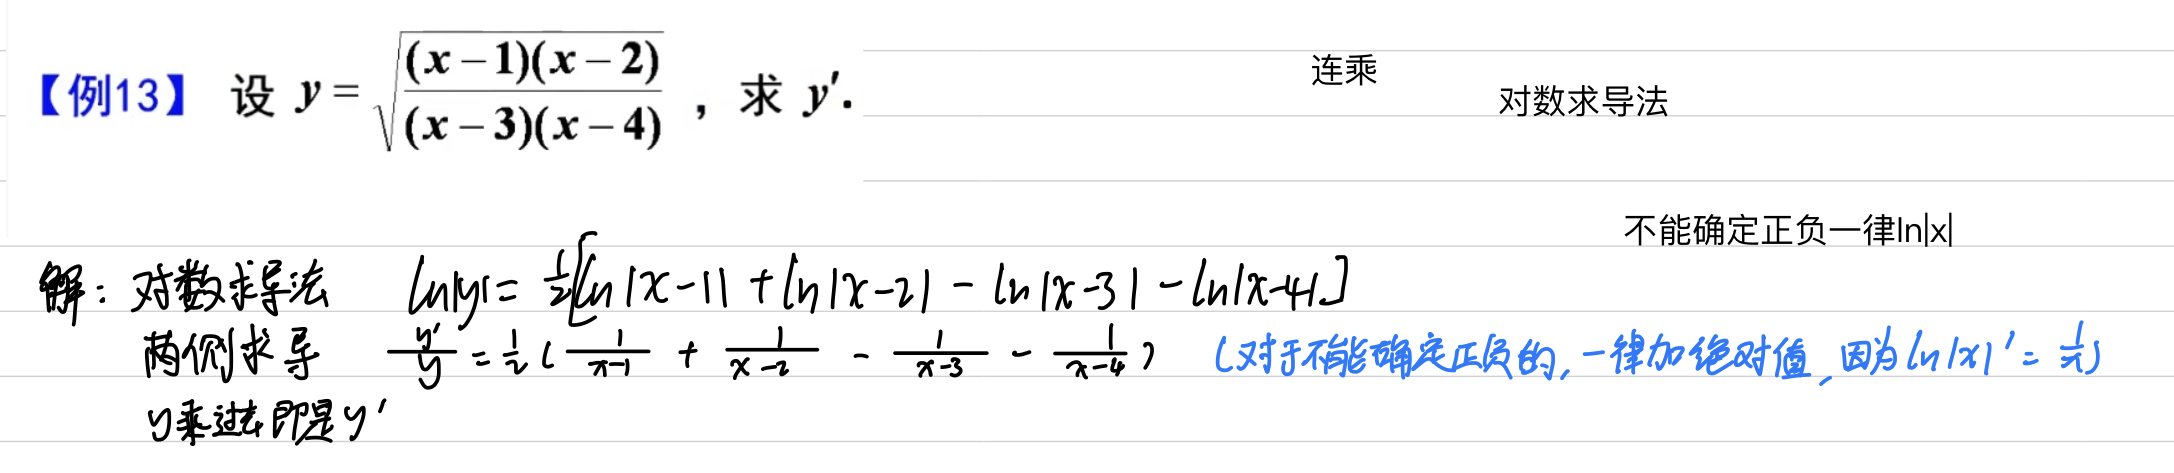 【例13】 设 y = √((x－1)(x－2)/((x－3)(x－4))) ，求 y′.
连乘
对数求导法
不能确定正负一律ln|x|
解：对数求导法 ln|y| = 1/2[ln|x-1| + ln|x-2| - ln|x-3| - ln|x-4|]
两侧求导 y′/y = 1/2 ( 1/(x-1) + 1/(x-2) - 1/(x-3) - 1/(x-4) ) (对于不能确定正负的,一律加绝对值,因为ln|x|′ = 1/x)
y乘过去即是y′